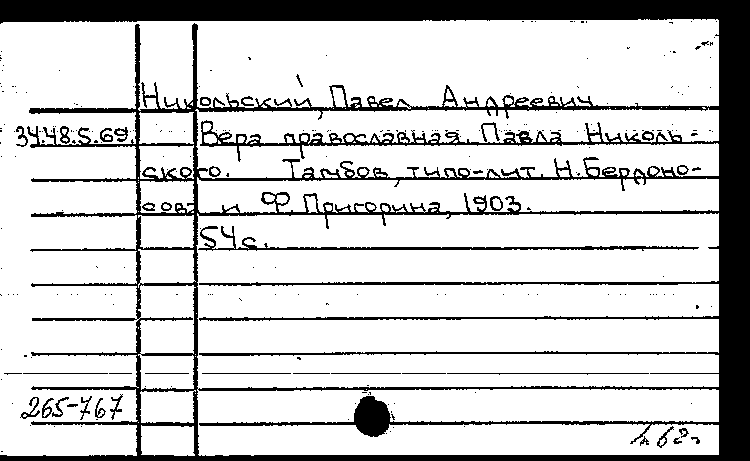 Никольский, Павел Андреевич
34.48.5.69. Вера православная. Павла Николь-
ского. Тамбов, типо-лит. Н. Бердоно-
сова и Ф. Пригорина, 1903.
54 с.
265-767